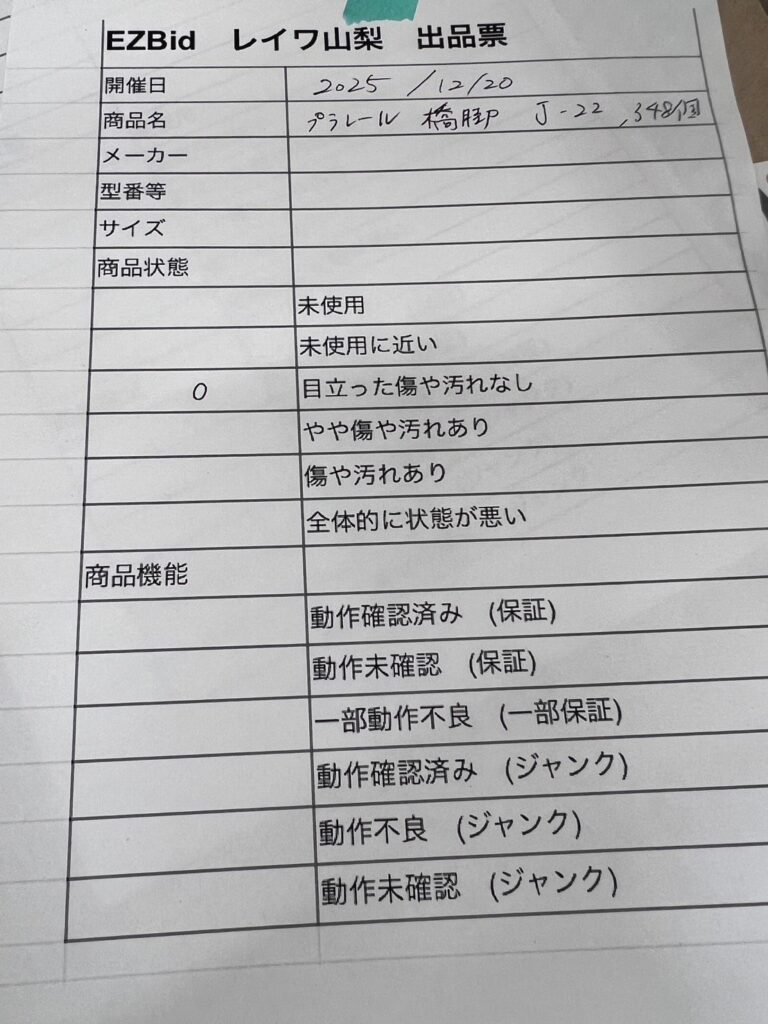 EZBid レイワ山梨 出品票
開催日 2025/12/20
商品名 プラレール 橋脚 J-22, 348個
メーカー
型番等
サイズ
商品状態
未使用
未使用に近い
O 目立った傷や汚れなし
やや傷や汚れあり
傷や汚れあり
全体的に状態が悪い
商品機能
動作確認済み (保証)
動作未確認 (保証)
一部動作不良 (一部保証)
動作確認済み (ジャンク)
動作不良 (ジャンク)
動作未確認 (ジャンク)